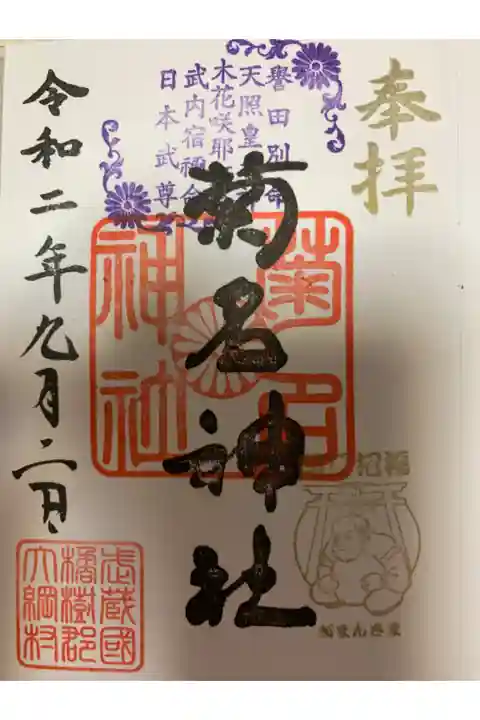 奉拝
譽田別命
天照皇
木花咲耶
武内宿禰命
日本武尊
菊名神社
菊名
神社
招福
がまんさま
令和二年九月二日
武蔵國
橘樹郡
大綱村